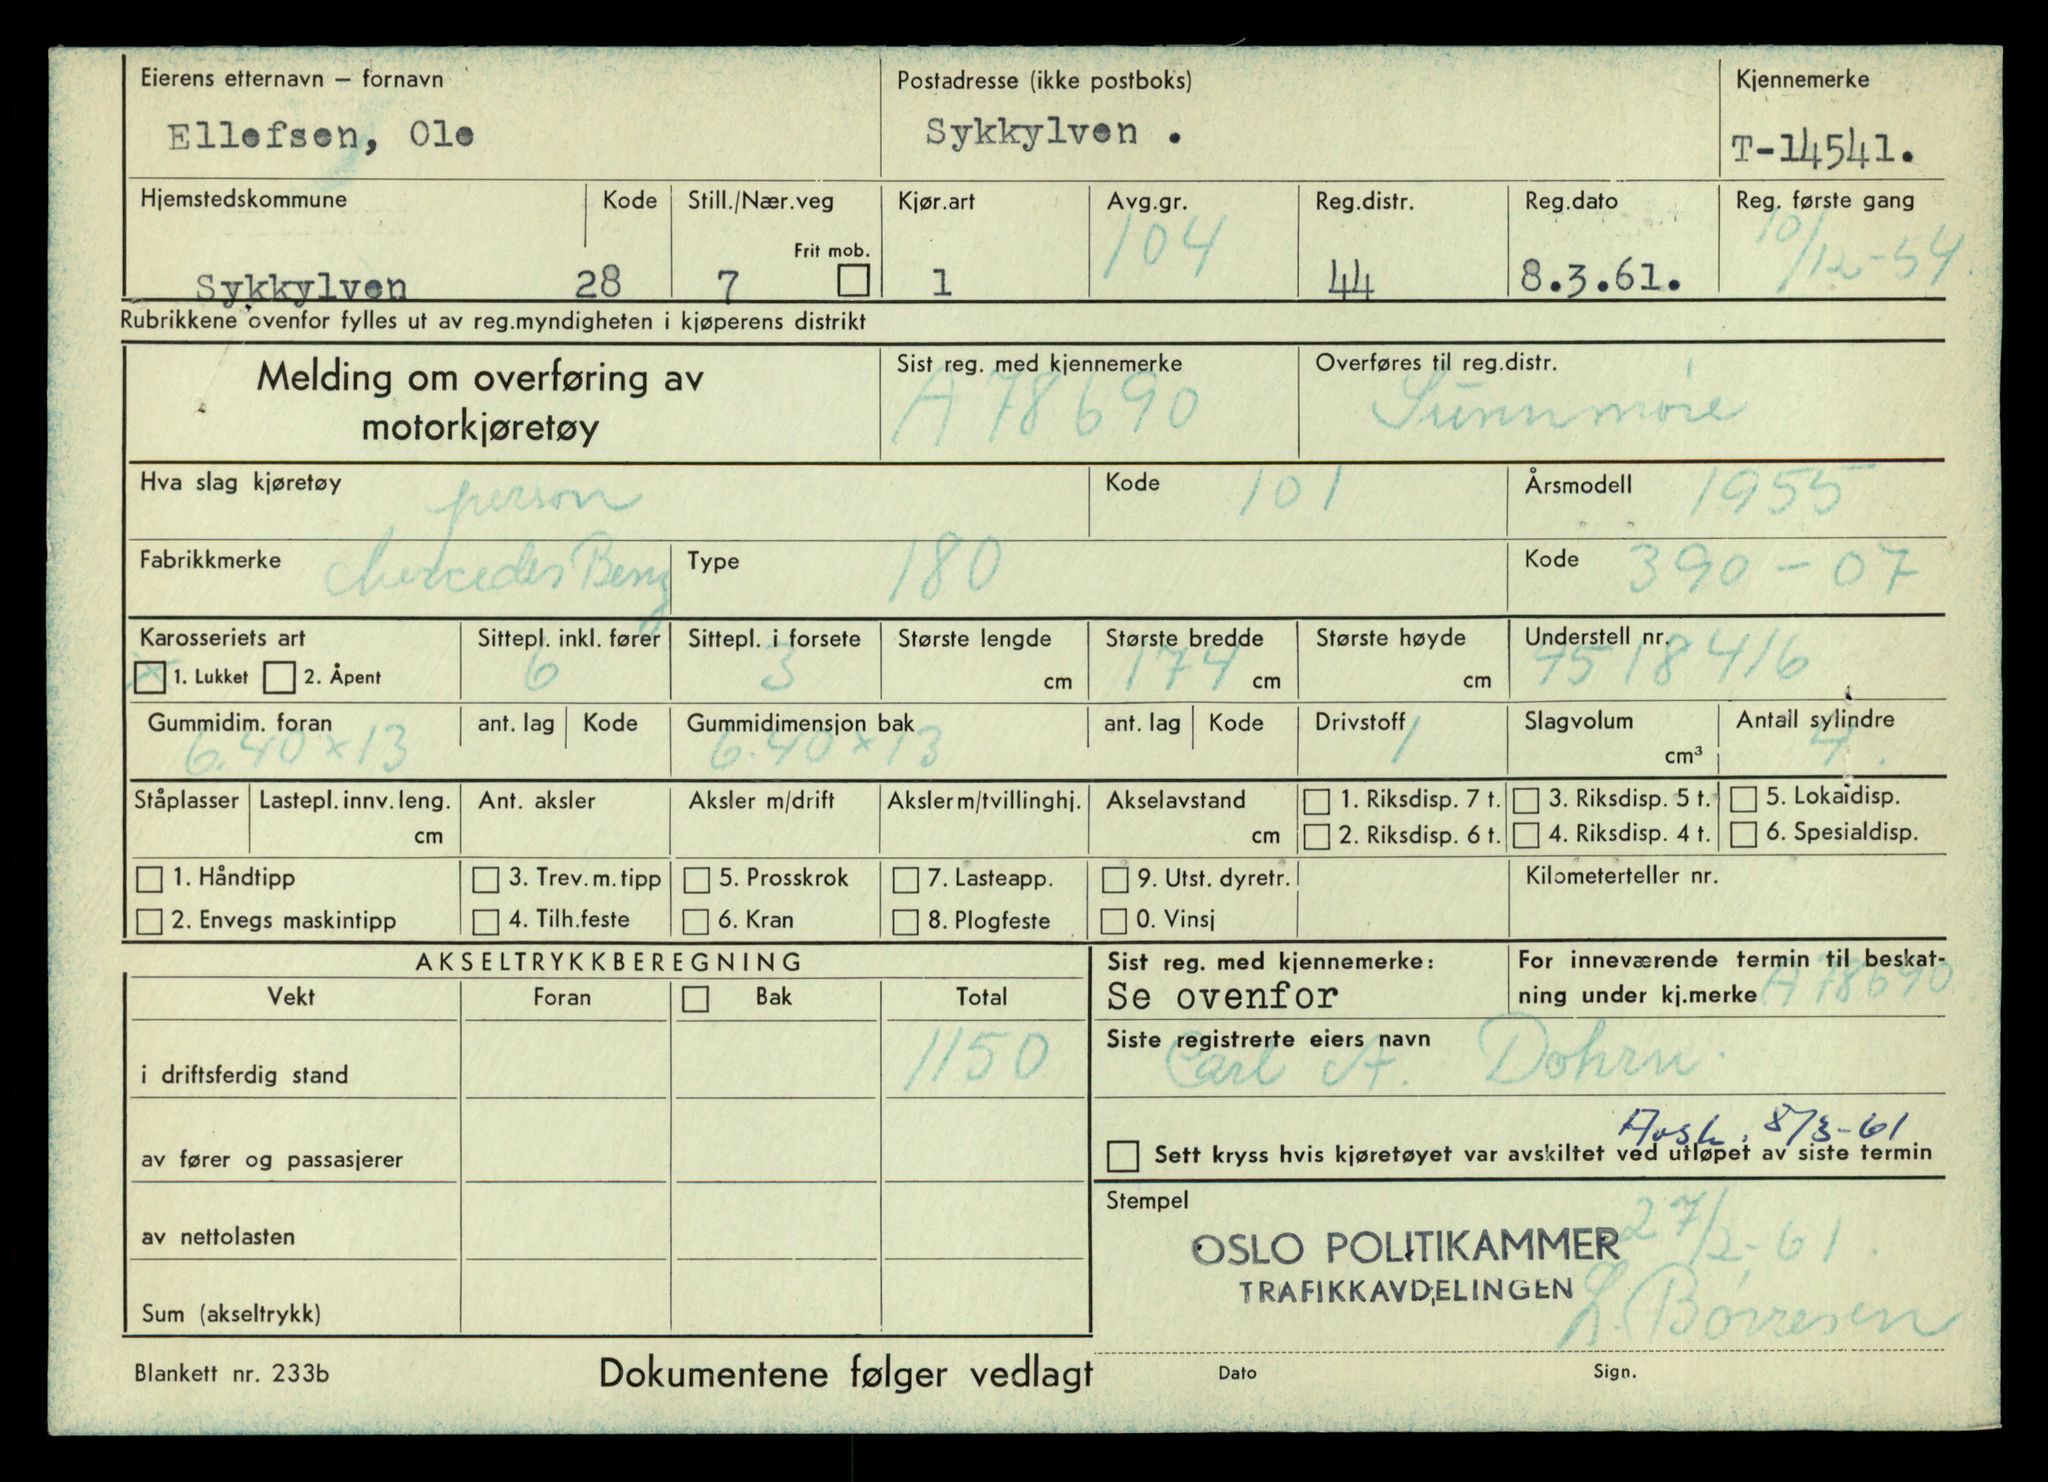 Eierens etternavn – fornavn Postadresse (ikke postboks) Kjennemerke
Ellefsen, Ole Sykkylven . T-14541.
Hjemstedskommune Kode Still./Nær.veg Kjør.art Avg.gr. Reg.distr. Reg.dato Reg. første gang
Frit mob.
Sykkylven 28 7 1 104 44 8.3.61. 10/12-54.
Rubrikkene ovenfor fylles ut av reg.myndigheten i kjøperens distrikt
Melding om overføring av motorkjøretøy
Sist reg. med kjennemerke Overføres til reg.distr.
A 78690 Sunnmøre
Hva slag kjøretøy person Kode 101 Årsmodell 1955
Fabrikkmerke Mercedes Benz Type 180 Kode 390-07
Karosseriets art Sittepl. inkl. fører Sittepl. i forsete Største lengde Største bredde Største høyde Understell nr.
x 1. Lukket 2. Åpent 6 3 cm 174 cm cm 7518416
Gummidim. foran ant. lag Kode Gummidimensjon bak ant. lag Kode Drivstoff Slagvolum Antall sylindre
6.40 x 13 6.40 x 13 1 cm³ 4.
Ståplasser Lastepl. innv. leng. Ant. aksler Aksler m/drift Aksler m/tvillinghj. Akselavstand 1. Riksdisp. 7 t. 3. Riksdisp. 5 t. 5. Lokaldisp.
cm cm 2. Riksdisp. 6 t. 4. Riksdisp. 4 t. 6. Spesialdisp.
1. Håndtipp 3. Trev. m. tipp 5. Prosskrok 7. Lasteapp. 9. Utst. dyretr. Kilometerteller nr.
2. Envegs maskintipp 4. Tilh.feste 6. Kran 8. Plogfeste 0. Vinsj
AKSELTRYKKBEREGNING
Vekt Foran Bak Total
i driftsferdig stand 1150
av fører og passasjerer
av nettolasten
Sum (akseltrykk)
Sist reg. med kjennemerke:
Se ovenfor
For inneværende termin til beskat-
ning under kj.merke A 78690
Siste registrerte eiers navn
Carl A. Dohrn.
8/3-61
Sett kryss hvis kjøretøyet var avskiltet ved utløpet av siste termin
Stempel
27/2-61.
OSLO POLITIKAMMER
TRAFIKKAVDELINGEN
L. Børresen
Dato Sign.
Blankett nr. 233b Dokumentene følger vedlagt